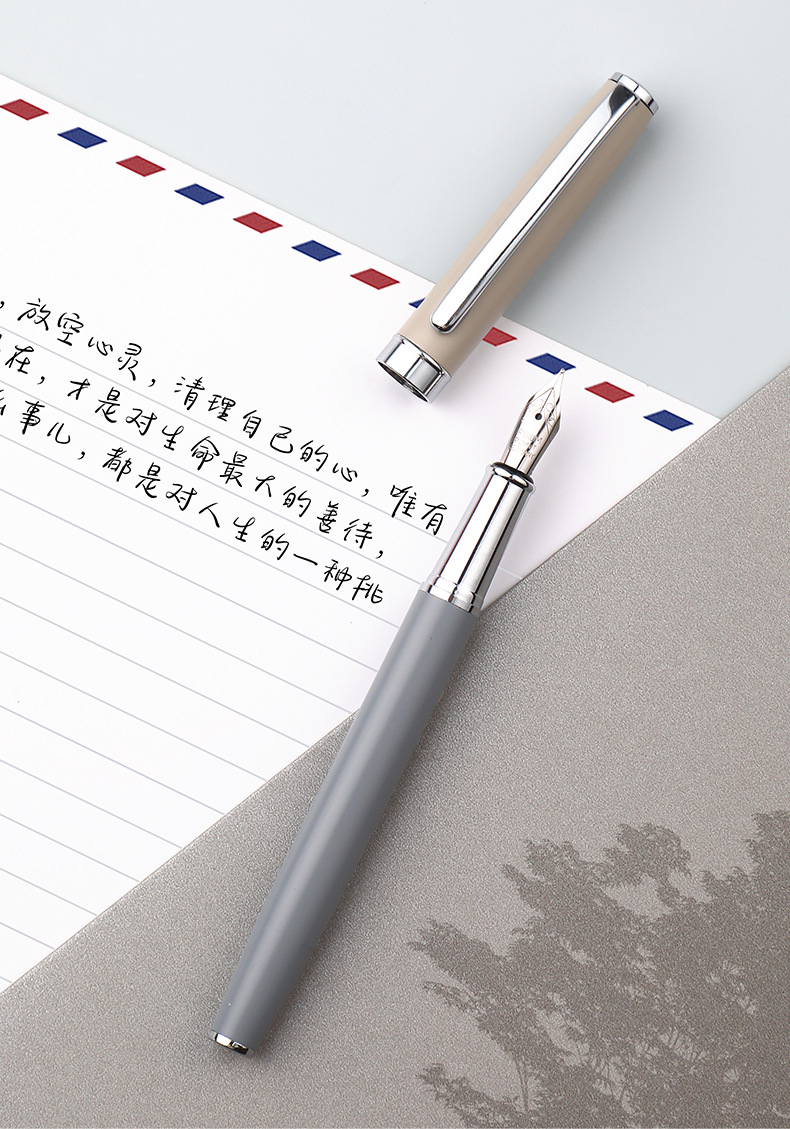 ，放空心灵，清理自己的心，唯有
在，才是对生命最大的善待，
事儿，都是对人生的一种挑